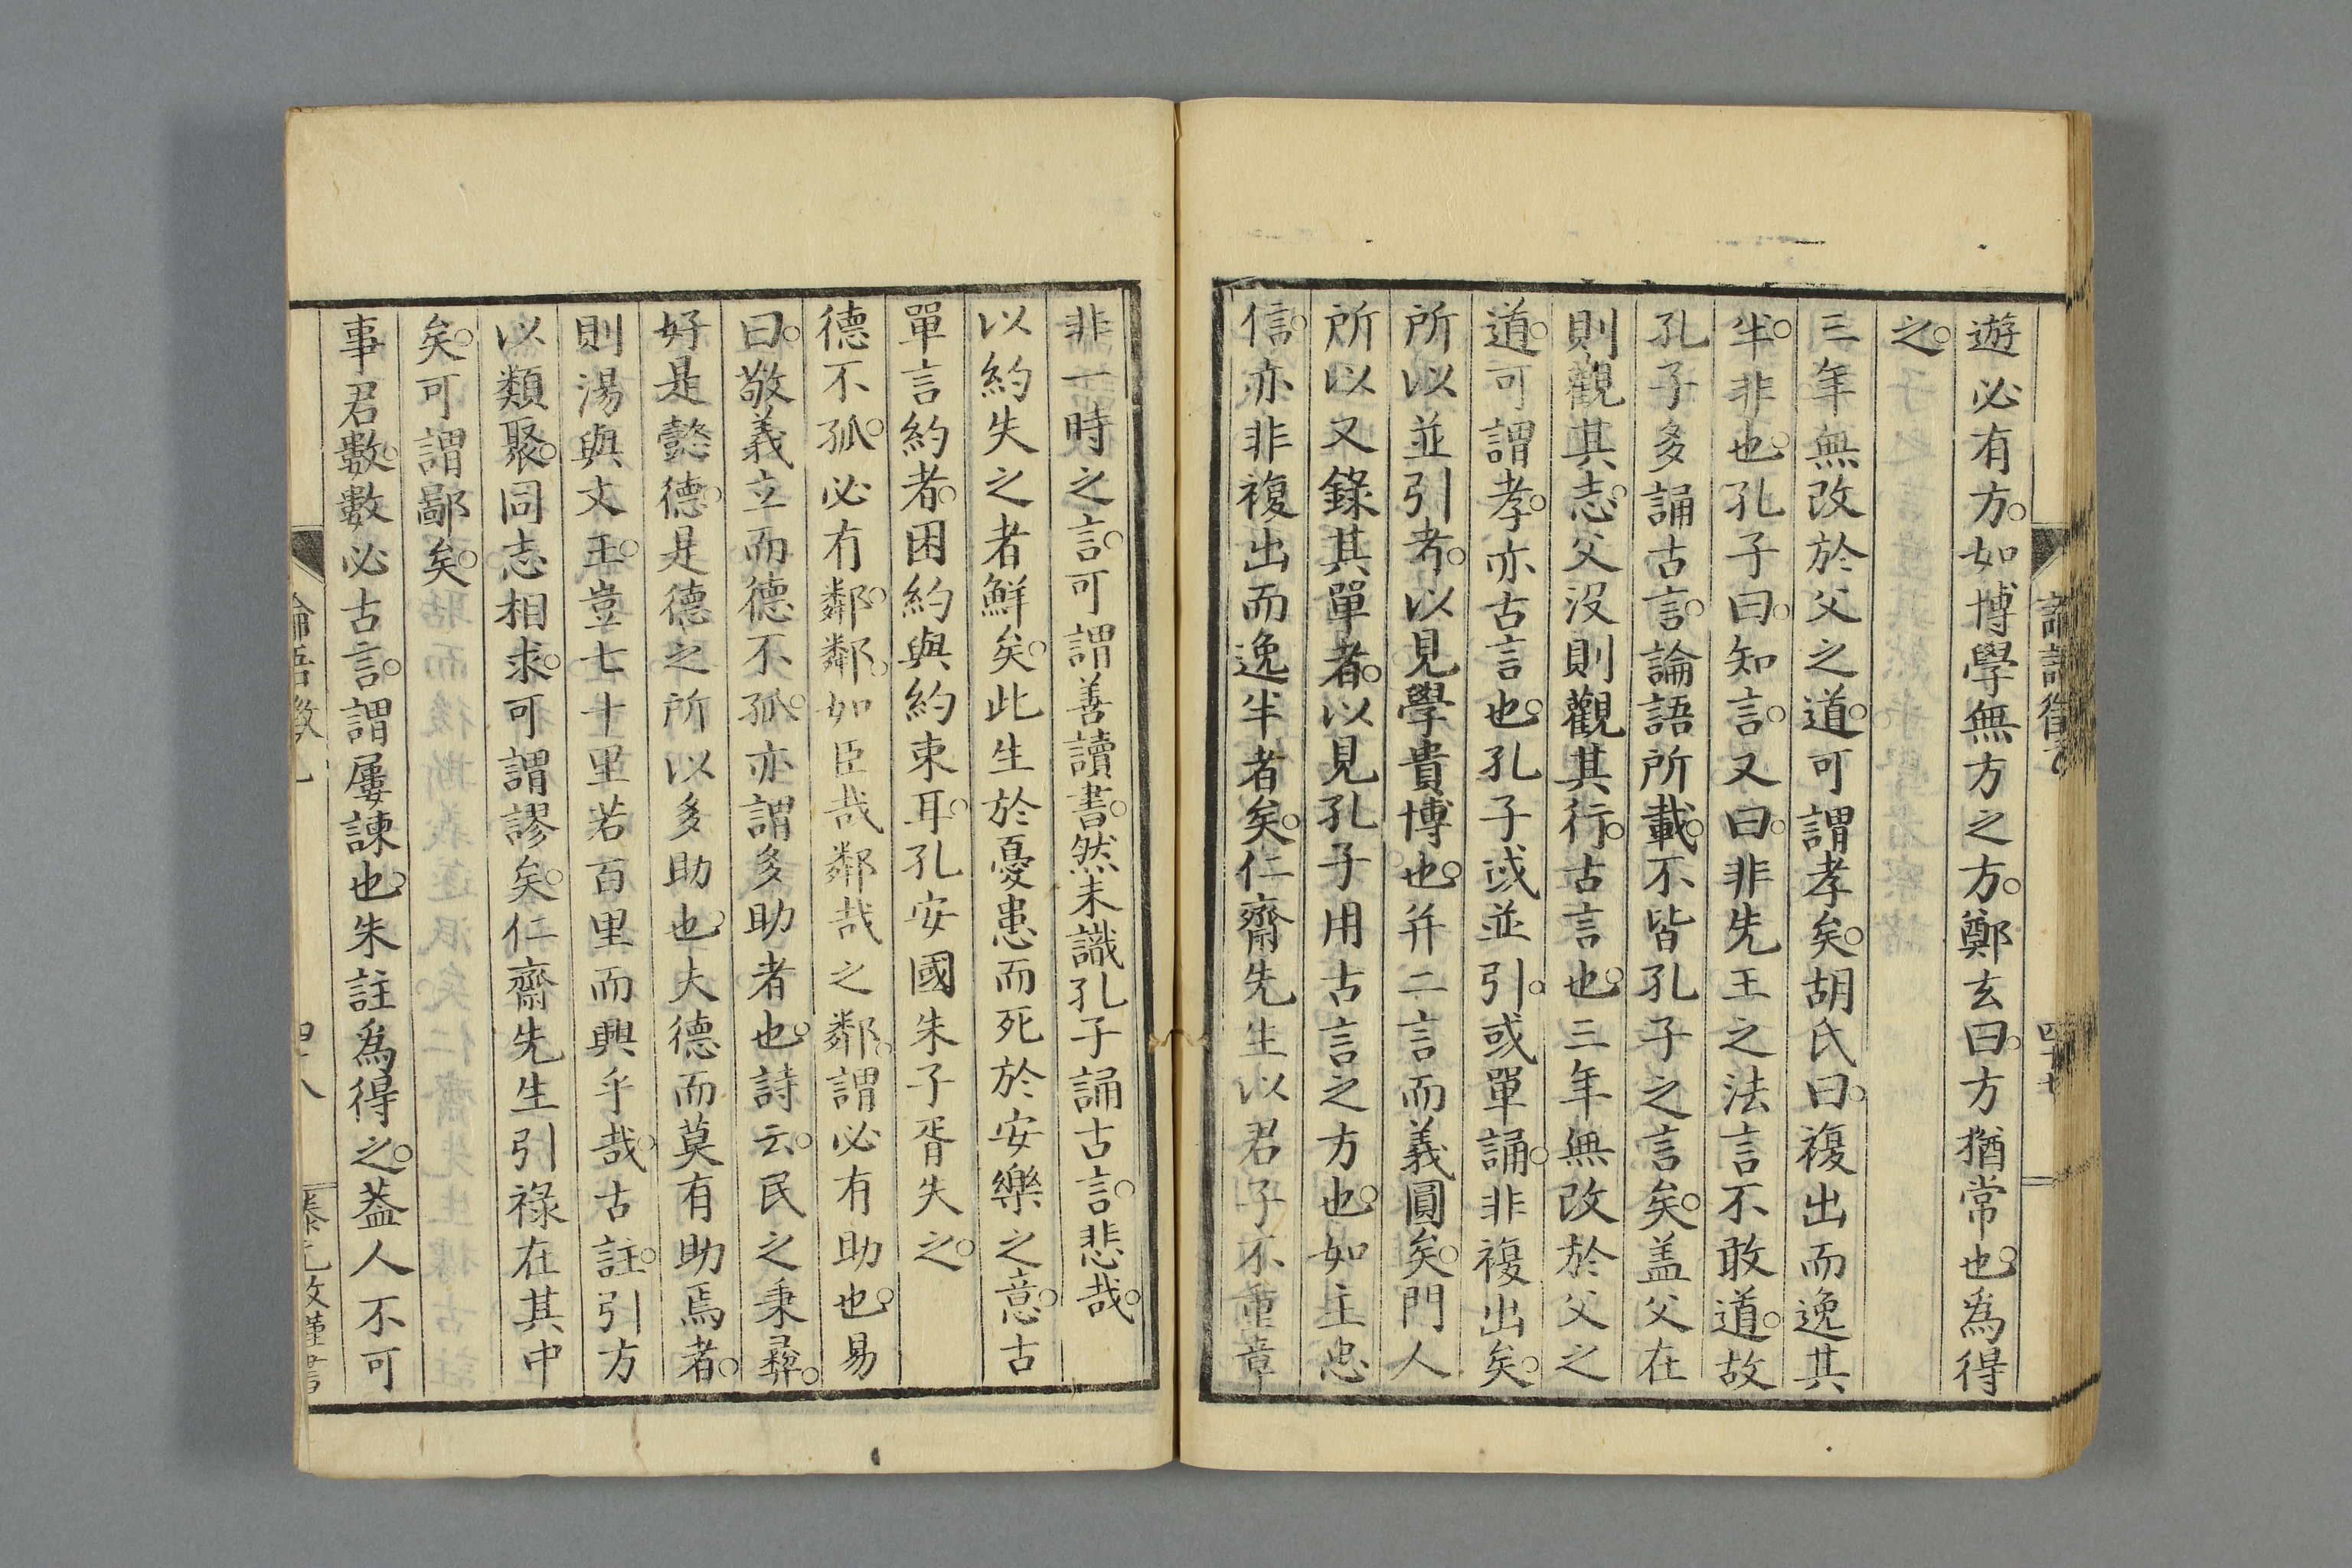 遊必有方。如博學無方之方。鄭玄曰。方猶常也。為得
之。
三年無改於父之道。可謂孝矣。胡氏曰。複出而逸其
半。非也。孔子曰。知言。又曰。非先王之法言不敢道。故
孔子多誦古言。論語所載。不皆孔子之言矣。盖父在
則觀其志。父沒則觀其行。古言也。三年無改於父之
道。可謂孝。亦古言也。孔子或並引。或單誦。非複出矣。
所以並引者。以見學貴博也。并二言而義圓矣。門人
所以又錄其單者。以見孔子用古言之方也。如主忠
信。亦非複出而逸半者矣。仁齋先生以君子不重章
非一時之言。可謂善讀書。然未識孔子誦古言。悲哉。
以約失之者鮮矣。此生於憂患而死於安樂之意。古
單言約者。困約與約束耳。孔安國朱子胥失之。
德不孤。必有鄰。鄰。如臣哉鄰哉之鄰。謂必有助也。易
曰。敬義立而德不孤。亦謂多助者也。詩云。民之秉彛。
好是懿德。是德之所以多助也。夫德而莫有助焉者。
則湯與文王。豈七十里若百里而興乎哉。古註。引方
以類聚。同志相求。可謂謬矣。仁齋先生引祿在其中
矣。可謂鄙矣。
事君數。數數必古言。謂屢諫也。朱註爲得之。蓋人不可